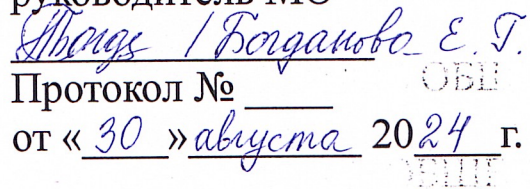 руководитель МО
/ Богданова Е. Г.
ОБЩ
Протокол № ______
от « 30 » августа 2024 г.